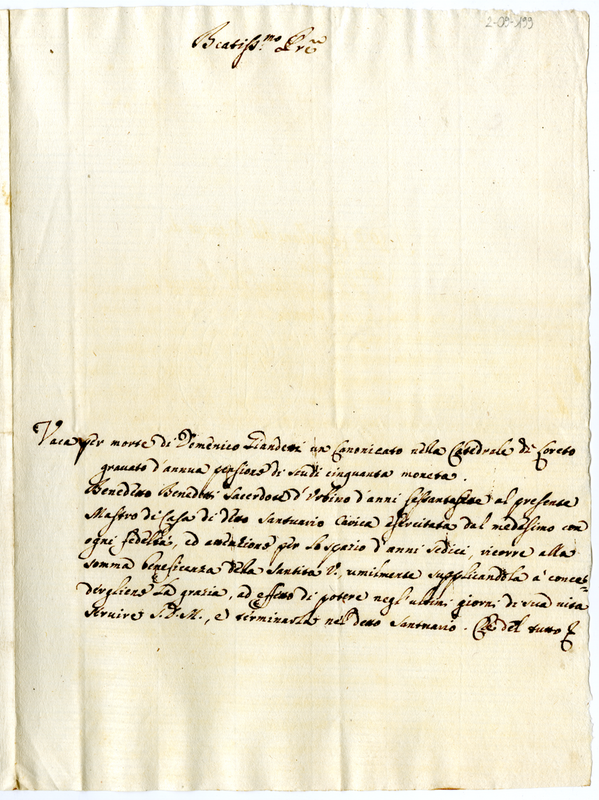 2-09-199
Beatiss.mo Pre
Vaca per morte di Domenico un Canonicato nella Catedrale di Loreto
gravato d'annua pensione di scudi cinquanta moneta.
Benedetto Benedetti Sacerdote d'Urbino d'anni al presente
Mastro di Casa di detto Santuario Carica esercitata dal medesimo con
ogni fedeltà, ed attenzione per lo spazio d'anni sedici, ricorre alla
somma beneficenza della Santità V., umilmente supplicandola à conce-
dergliene la grazia, ad effetto di potere negli ultimi giorni di sua vita
servire S.D.M., e terminarla nel detto Santuario. Che del tutto